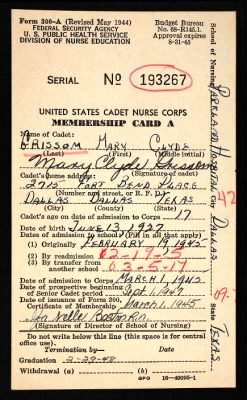 Form 300-A (Revised May 1944)
FEDERAL SECURITY AGENCY
U. S. PUBLIC HEALTH SERVICE
DIVISION OF NURSE EDUCATION
Budget Bureau
No. 68-R145.1.
Approval expires
8-31-45
SERIAL No 193267
UNITED STATES CADET NURSE CORPS
MEMBERSHIP CARD A
Name of Cadet:
GRISSOM MARY CLYDE
(Last) (First) (Middle initial)
Mary Clyde Grissom
Cadet's home address: (Signature of cadet)
2715 FORT BEND PLACE
(Number and street, or R. F. D.)
DALLAS DALLAS TEXAS
(City) (County) (State)
Cadet's age on admission to Corps 17
Date of birth JUNE 13, 1927
Dates of admission to school: (Fill in all that apply)
(1) Originally FEBRUARY 19, 1945
(2) By readmission 02-19-25
(3) By transfer from
another school 63-5-17
Date of admission to Corps MARCH 1, 1945
Date of prospective beginning of
Senior Cadet period Sept. 1, 1947
Date of issuance of Form 300,
Certificate of Membership March 1, 1945
(Signature of Director of School of Nursing)
Do not write below this line (this space for central
office use).
Termination by— Date
Graduation 2-29-48
Withdrawal (a)
(b) GPO 16-40095-1
School of Nursing PARKLAND HOSPITAL
DALLAS
42
09-
State TEXAS